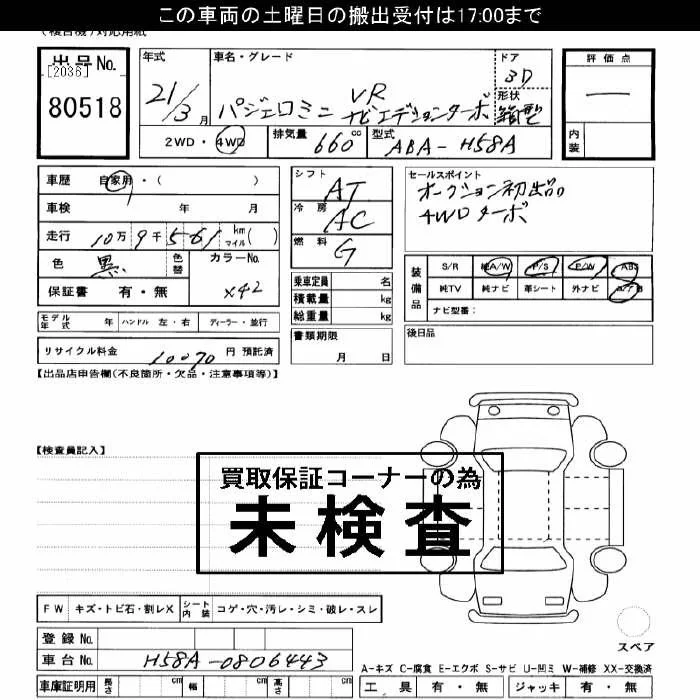 この車両の土曜日の搬出受付は17:00まで
(複合機)対応用紙
出品No.
[2036]
80518
年式 車名・グレード ドア
3D
21/3月 パジェロミニ VR
ナビエディションターボ
形状 箱型
2WD・4WD 排気量 660cc 型式 ABA-H58A
評価点
―
内装
車歴 自家用・( )
車検 年 月
走行 10万9千561 kmマイル( )
色 黒 色替 カラーNo.
X42
保証書 有・無
シフト AT
冷房 AC
燃料 G
乗車定員 名
積載量 kg
総重量 kg
セールスポイント
オークション初出品
4WDターボ
装備品 S/R 純A/W P/S P/W ABS
純TV 純ナビ 革シート 外ナビ A/B
ナビ型番:
モデル年式 年 ハンドル 左・右 ディーラー・並行
書類期限
月 日
後日品
リサイクル料金 10070 円 預託済
【出品店申告欄(不良箇所・欠品・注意事項等)】
【検査員記入】
買取保証コーナーの為
未検査
FW キズ・トビ石・割レX シート内装 コゲ・穴・汚レ・シミ・破レ・スレ
登録No.
車台No. H58A-0806443
スペア
A-キズ C-腐食 E-エクボ S-サビ U-凹ミ W-補修 XX-交換済
車庫証明用 長さ cm 幅 cm 高さ cm
工具 有・無 ジャッキ 有・無